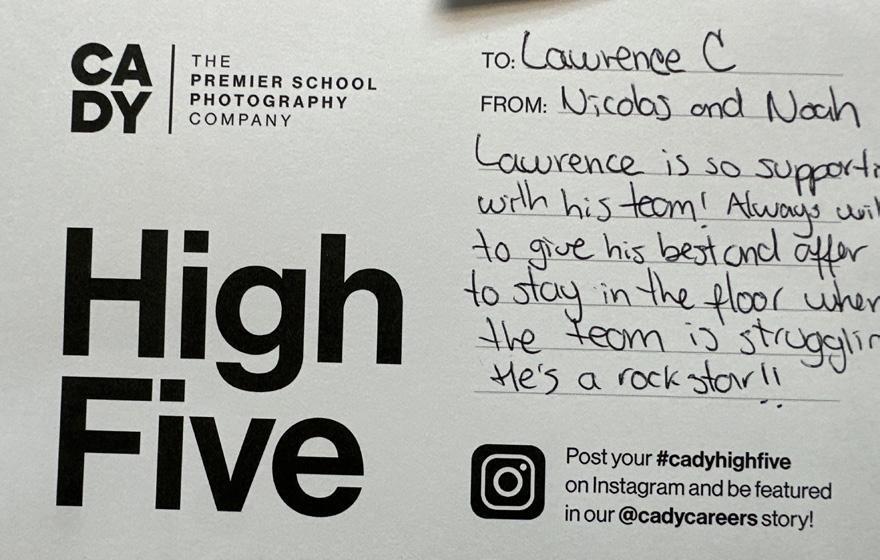 CA
DY
THE
PREMIER SCHOOL
PHOTOGRAPHY
COMPANY
High
Five
TO: Lawrence C
FROM: Nicolas and Noah
Lawrence is so supporti
with his team! Always wil
to give his best and offer
to stay in the floor when
the team is strugglin
He's a rockstar!!
Post your #cadyhighfive
on Instagram and be featured
in our @cadycareers story!